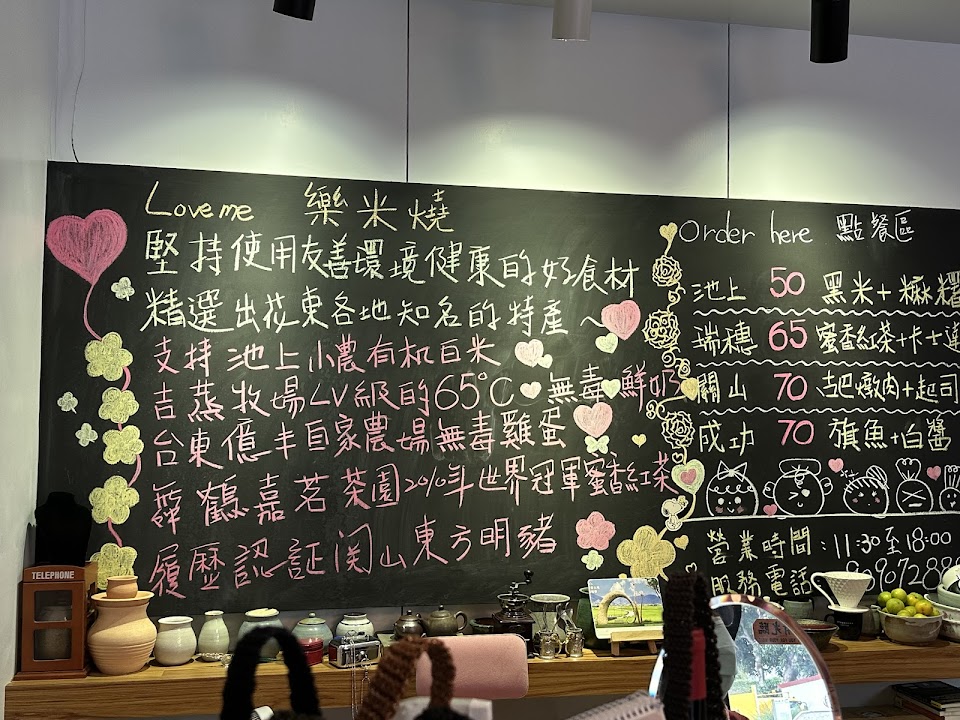 Love me 樂米燒
堅持使用友善環境健康的好食材
精選出花東各地知名的特產~
支持池上小農有机白米
吉蒸牧場LV級的65℃無毒鮮奶
台東億丰自家農場無毒雞蛋
舞鶴嘉茗茶園2010年世界冠軍蜜香紅茶
履歷認証関山東方明豬
Order here 點餐區
池上 50 黑米+麻糬
瑞穗 65 蜜香紅茶+卡士達
關山 70 古早味燉肉+起司
成功 70 旗魚+白醬
營業時間:11:30至18:00
服務電話
TELEPHONE